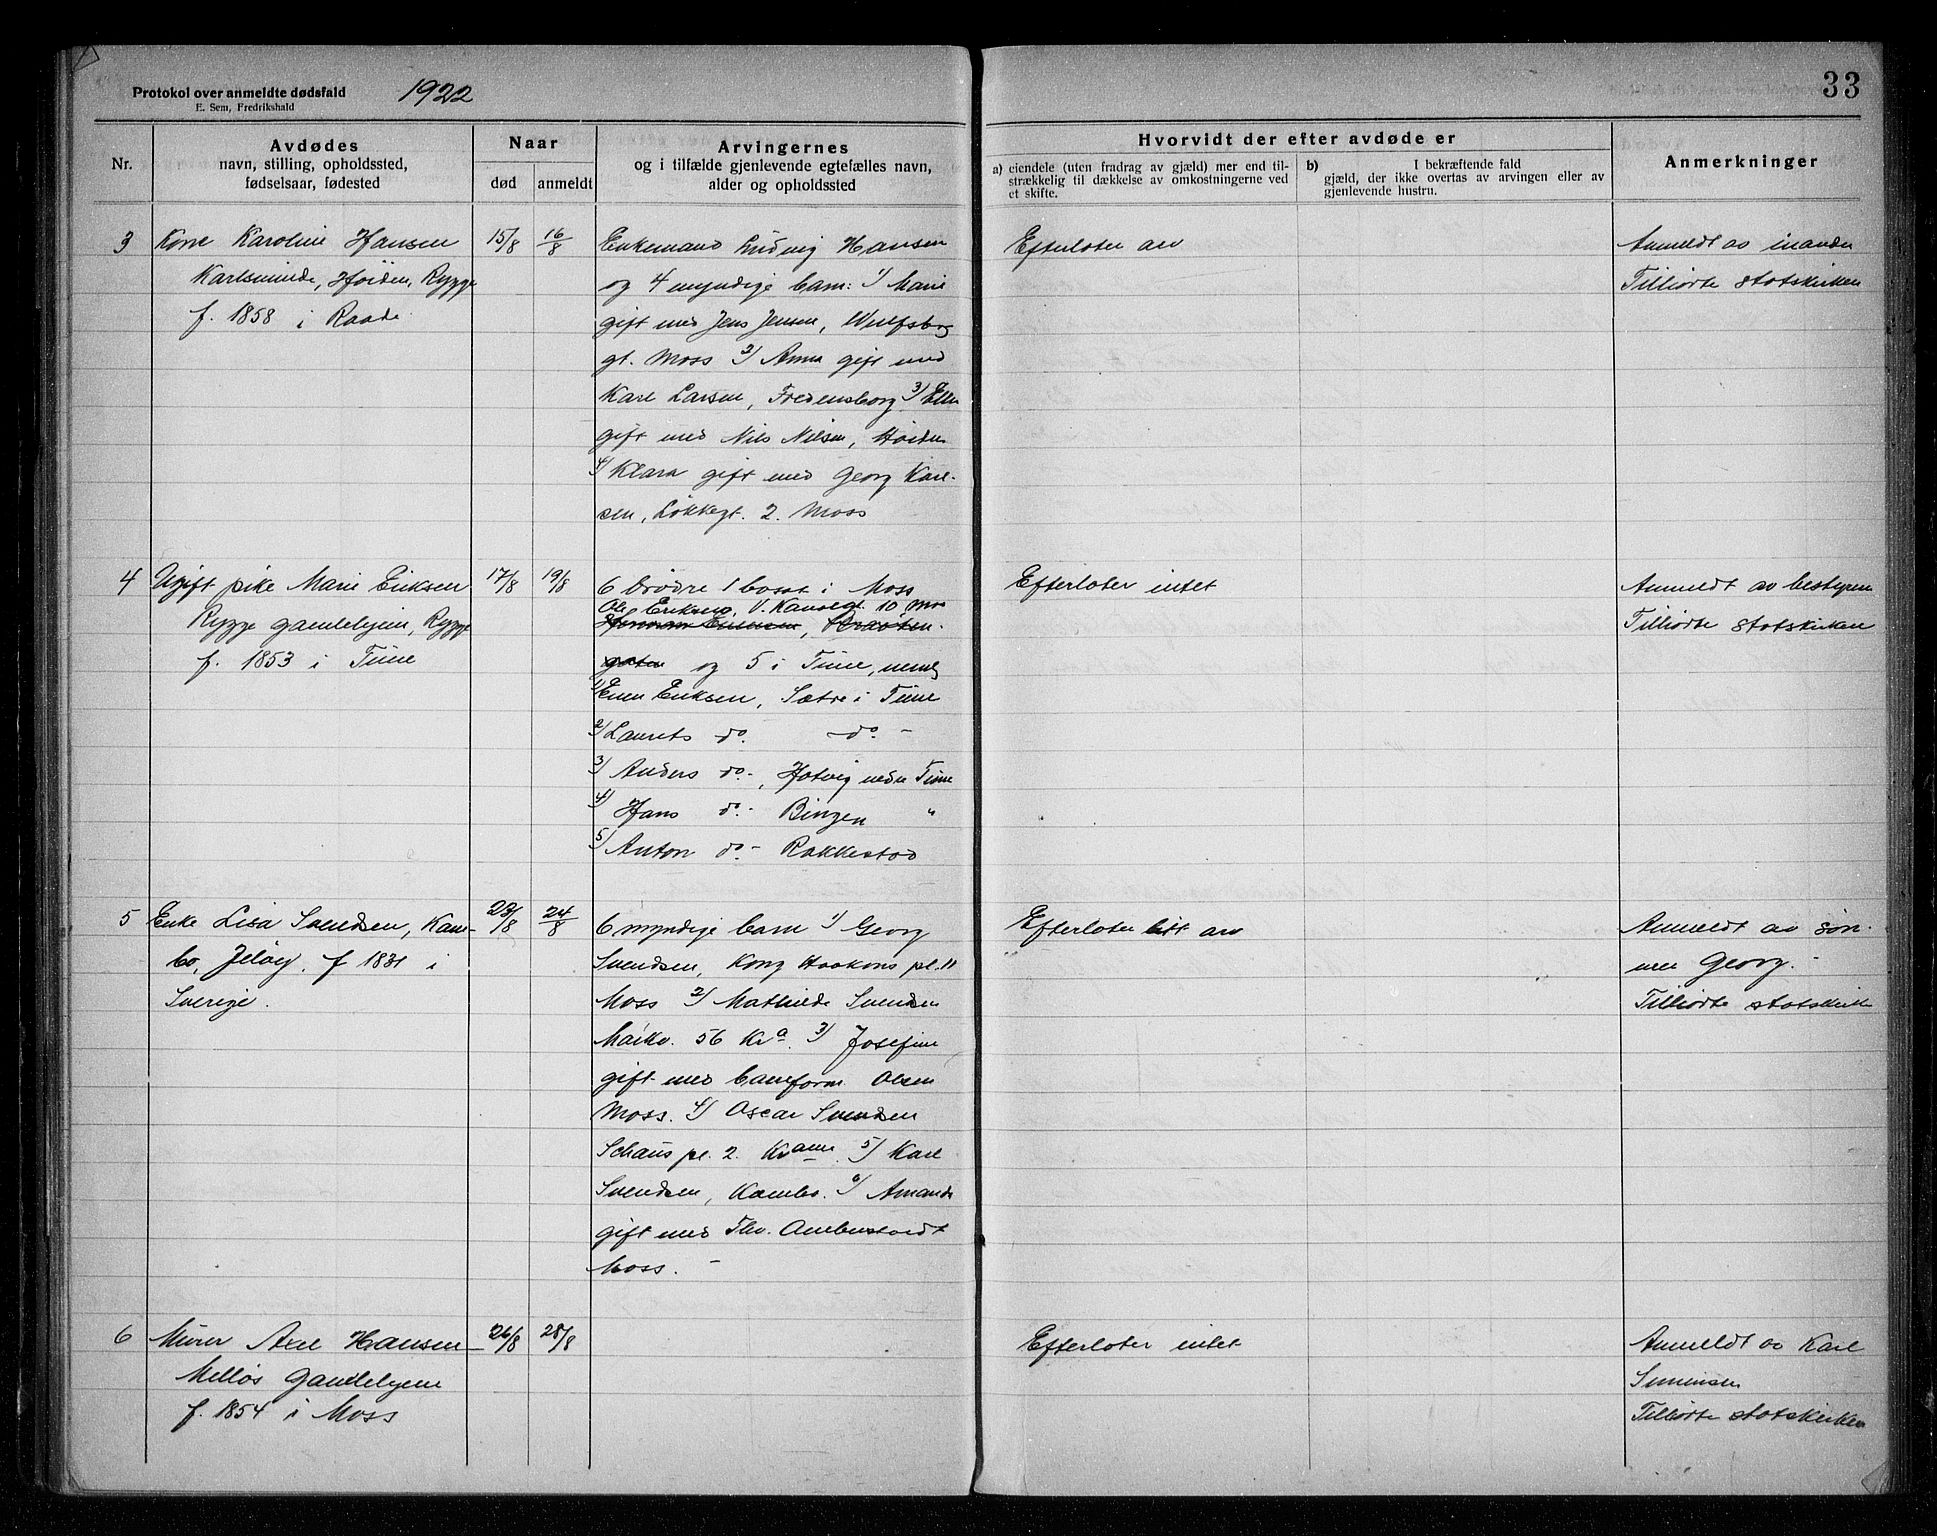 Protokol over anmeldte dødsfald 1922
E. Sem, Fredrikshald
33
Nr.
Avdødes
navn, stilling, opholdssted,
fødselsaar, fødested
Naar
død
anmeldt
Arvingernes
og i tilfælde gjenlevende egtefælles navn,
alder og opholdssted
Hvorvidt der efter avdøde er
a) eiendele (uten fradrag av gjæld) mer end til-
strækkelig til dækkelse av omkostningerne ved
et skifte.
b) I bekræftende fald
gjæld, der ikke overtas av arvingen eller av
gjenlevende hustru.
Anmerkninger
3
Kone Karoline Hansen
Karlsminde, Høiden, Rygge
f. 1858 i Raade.
15/8
16/8
Enkemand Ludvig Hansen
og 4 myndige barn: 1) Marie
gift med Jens Jensen, Wulfsberg
gt. Moss 2) Anna gift med
Karl Larsen, Fredensborg 3) Ellen
gift med Nils Nilsen, Høiden
4) Klara gift med Georg Karl-
sen, Løkkegt. 2. Moss
Efterlater arv
Anmeldt av manden
Tilhørte statskirken
4
Ugift pike Marie Eriksen
Rygge gamlehjem, Rygge
f. 1853 i Tune
17/8
19/8
6 brødre 1 bosat i Moss
Ole Eriksen, V. Kanalgt. 10 Moss
og 5 i Tune, nemlig
1) Even Eriksen, Sætre i Tune
2) Laurits do. -do.-
3) Anders do.-, Hatvig nedre Tune
4) Hans do.- Bingen "
5) Anton do.- Rakkestad
Efterlater intet
Anmeldt av bestyreren
Tilhørte statskirken
5
Enke Lisa Svendsen, Kam-
bo, Jeløy. f 1831 i
Sverige.
23/8
24/8
6 myndige barn 1) Georg
Svendsen, Kong Haakons pl. 11
Moss 2) Mathilde Svendsen
Markv. 56 Kra. 3) Josefine
gift med baneform. Olsen
Moss. 4) Oscar Svendsen
Schaus pl. 2. Kr.ania 5) Karl
Svendsen, Kambo. 6) Amanda
gift med Thv.
Moss. -
Efterlater litt arv
Anmeldt av søn-
nen Georg. -
Tilhørte statskirken
6
Murer Axel Hansen
Melløs Gamlehjem
f. 1854 i Moss
26/8
28/8
Efterlater intet
Anmeldt av Karl
Simensen
Tilhørte statskirken